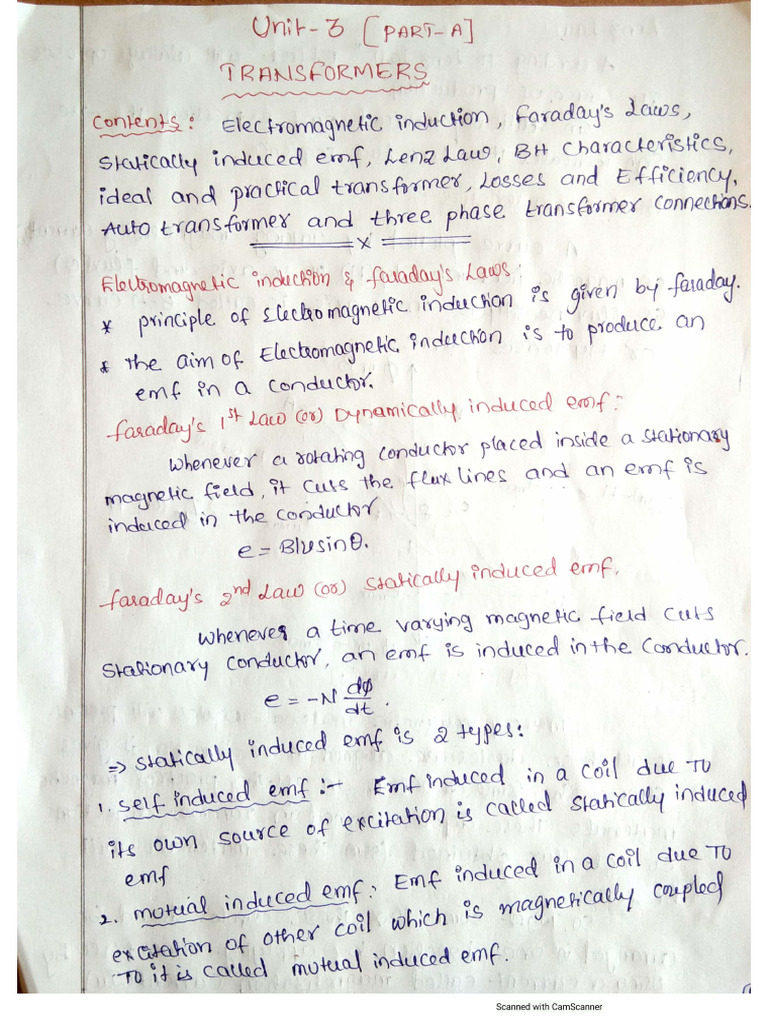 Unit-3 [PART-A]
TRANSFORMERS
Contents: Electromagnetic induction, Faraday's Laws,
Statically induced emf, Lenz Law, BH Characteristics,
ideal and practical transformer, Losses and Efficiency,
Auto transformer and three phase transformer connections.
x
Electromagnetic induction & Faraday's Laws:
* principle of Electromagnetic induction is given by faraday.
* the aim of Electromagnetic induction is to produce an
emf in a conductor.
faraday's 1st Law (or) Dynamically induced emf:
Whenever a rotating conductor placed inside a stationary
magnetic field, it cuts the flux lines and an emf is
induced in the conductor.
e = Blvsinθ.
faraday's 2nd Law (or) statically induced emf.
Whenever a time varying magnetic field cuts
stationary conductor, an emf is induced in the conductor.
e = -N dφ/dt.
=> statically induced emf is 2 types:
1. self induced emf :- Emf induced in a coil due to
its own source of excitation is called statically induced
emf
2. mutual induced emf: Emf induced in a coil due to
excitation of other coil which is magnetically coupled
to it is called mutual induced emf.
Scanned with CamScanner